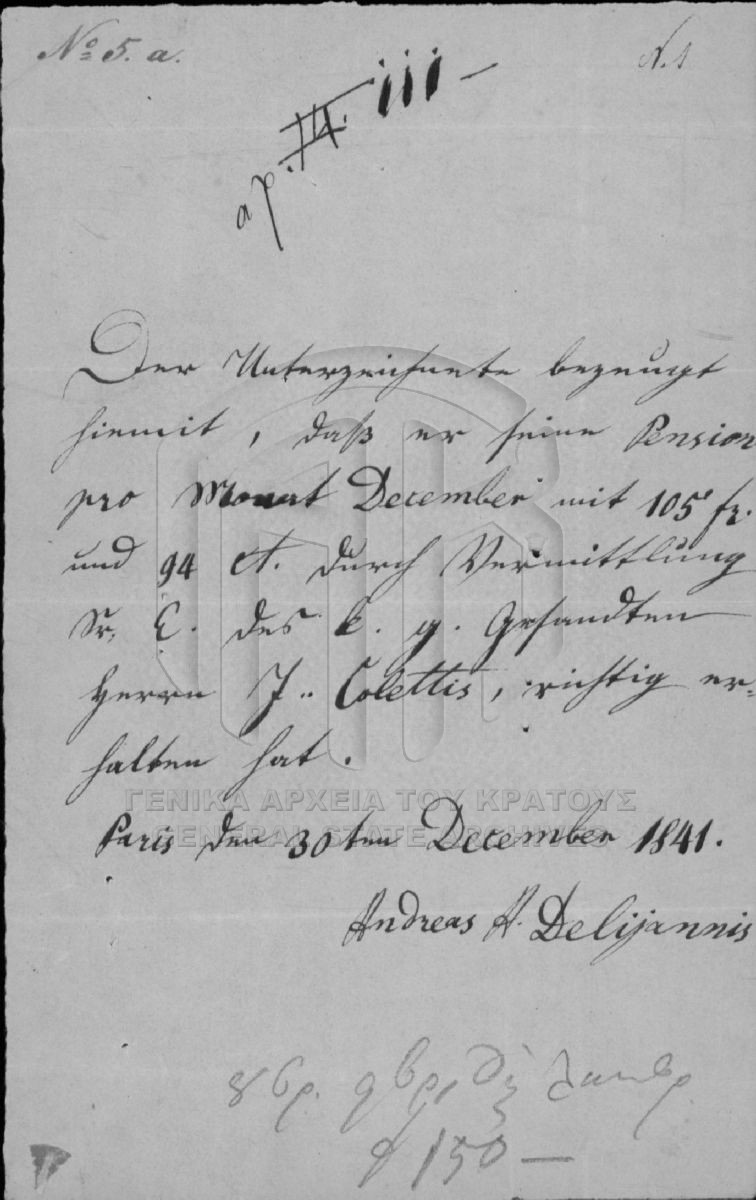 No 5. a.
N. 1
ap.
Der Unterzeichnete bezeugt
hiemit, daß er seine Pension
pro Monat December mit 105 fr.
und 94 ct. durch Vermittlung
Sr. E. des k. g. Gesandten
Herrn J.. Colettis, richtig er=
halten hat.
ΓΕΝΙΚΑ ΑΡΧΕΙΑ ΤΟΥ ΚΡΑΤΟΥΣ
GENERAL STATE ARCHIVES
Paris den 30ten December 1841.
Andreas A. Delijannis
150 —